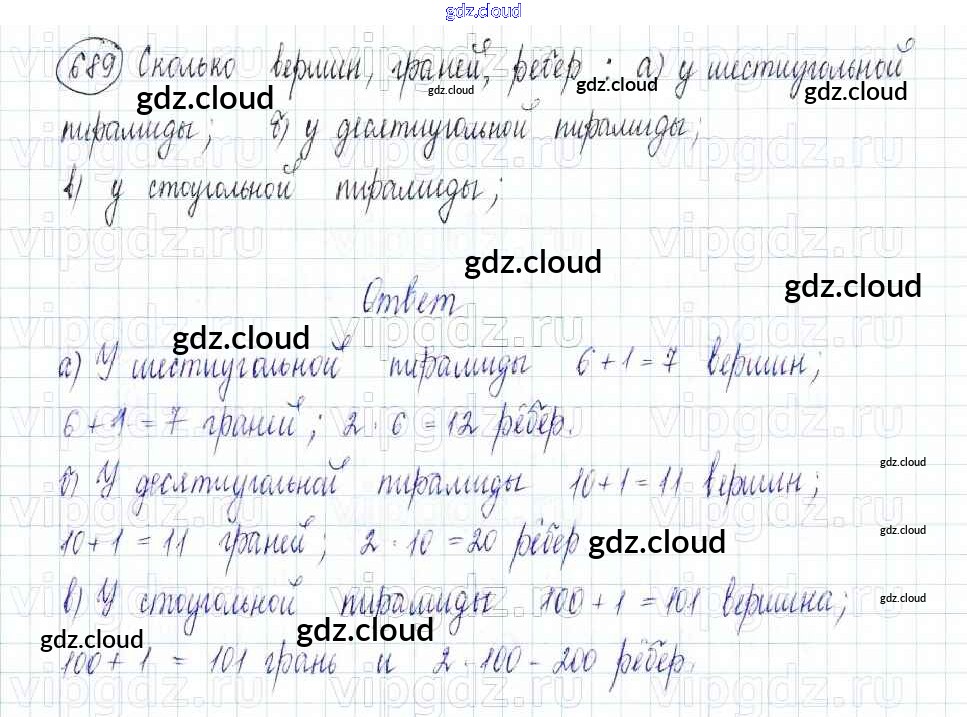 gdz.cloud
689 Сколько вершин, граней, рёбер: а) у шестиугольной
gdz.cloud gdz.cloud gdz.cloud gdz.cloud
пирамиды; б) у десятиугольной пирамиды;
в) у стоугольной пирамиды;
vipgdz.ru
gdz.cloud
gdz.cloud
Ответ
gdz.cloud
а) У шестиугольной пирамиды 6 + 1 = 7 вершин;
6 + 1 = 7 граней; 2 · 6 = 12 рёбер.
gdz.cloud
б) У десятиугольной пирамиды 10 + 1 = 11 вершин;
10 + 1 = 11 граней; 2 · 10 = 20 рёбер gdz.cloud
gdz.cloud
в) У стоугольной пирамиды 100 + 1 = 101 вершина;
gdz.cloud
gdz.cloud gdz.cloud
100 + 1 = 101 грань и 2 · 100 - 200 рёбер.